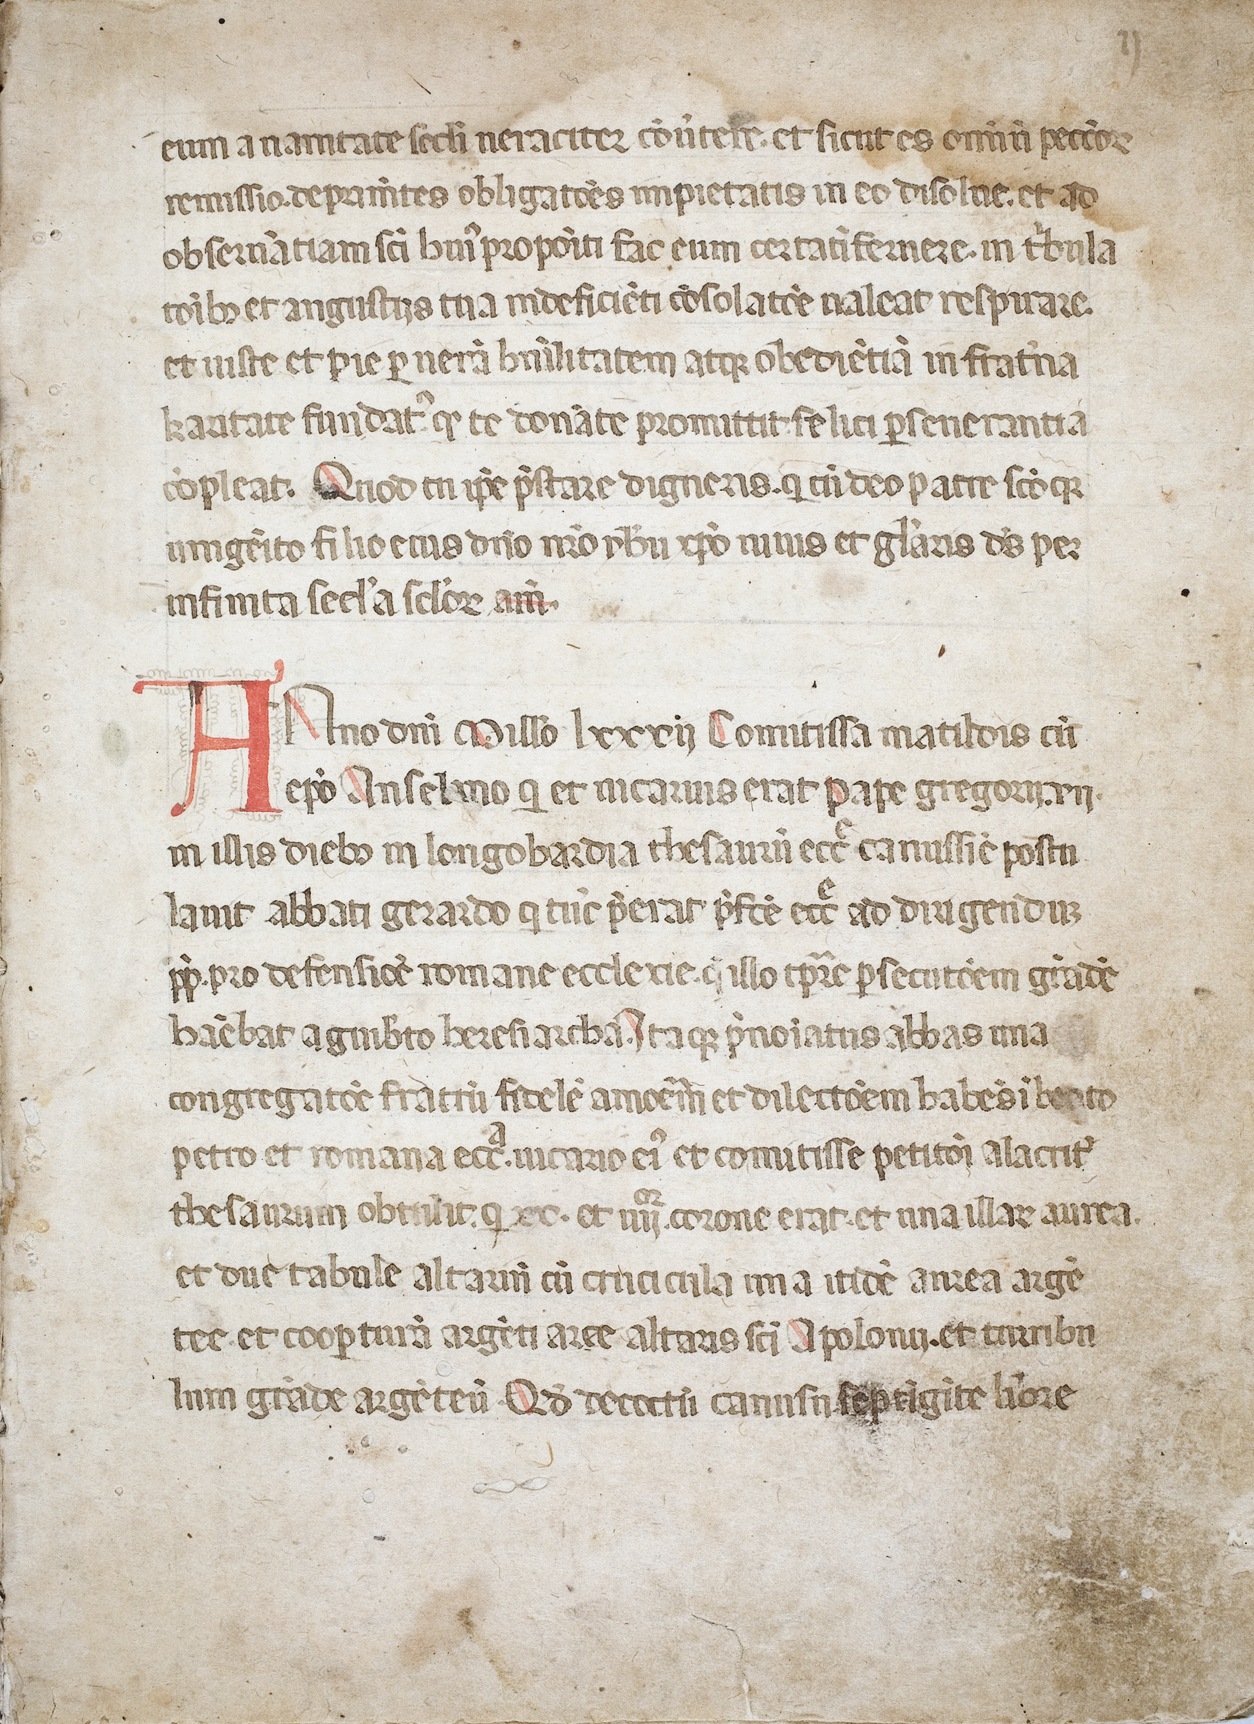 eum a uanitate sec̄li ueraciter cōu̓tere. et sicut es om̄iū pecc̄oꝝ
remissio. deprim̄tes obligatōes impietatis in eo disolue. et ad
obseru̓atiam sc̄i hui᷒ propo̓iti fac eum certati̓ feruere. in tͥbula
toi̓bȝ et angustijs tua indeficiēti cōsolatōe ualeat respirare.
et iuste et pie ꝑ uerā hūilitatem atqꝫ obediētiā in frat̓na
karitate fundat᷒. qꝫ te donāte promittit. felici ꝑseuerantia
cōpleat. Quod tu ip̄e p̄stare digneris. q cū deo patre sc̄oqꝫ
unigēito filio eius dn̄o nr̄o yh̄u xp̄o uiuis et gl̓aris d̄s per
infinita secl̓a scl̓oꝝ am̄.
ANno dn̄i Millo̓ lxxxij Comitissa matildis cū
ep̄o Anselmo q et uicarius erat pape gregorij. vij.
in illis diebȝ in longobardia thesaurū ecc̄ᵉ canussiē postu
lauit abbati gerardo q tūc p̄erat p̄fcē ecc̄ᵉ ad dirigendum
pp̄. pro defensiōe romane ecclexie. q illo tp̄re ꝑsecutōem grādē
haēbat a guib̓to heresiarcha. Itaqꝫ p̄noi̓atus abbas una
congregatōe fratrū fidelē amōem et dilectōem habēs i beato
petro et romana ecc̄ᵃ. uicario ei᷒ et comitisse petitōi alacrit̓
thesaurum obtulit. q xx. et iiijᵒʳ. corone erat. et una illaꝝ aurea.
et due tabule altariū cū crucicula una itidē aurea argē
tee. et cooꝑturā argēti arce altaris sc̄i Apolonij. et turribu
lum grāde argēteū Qd̄ decoctū canusij septīgite lib̓re